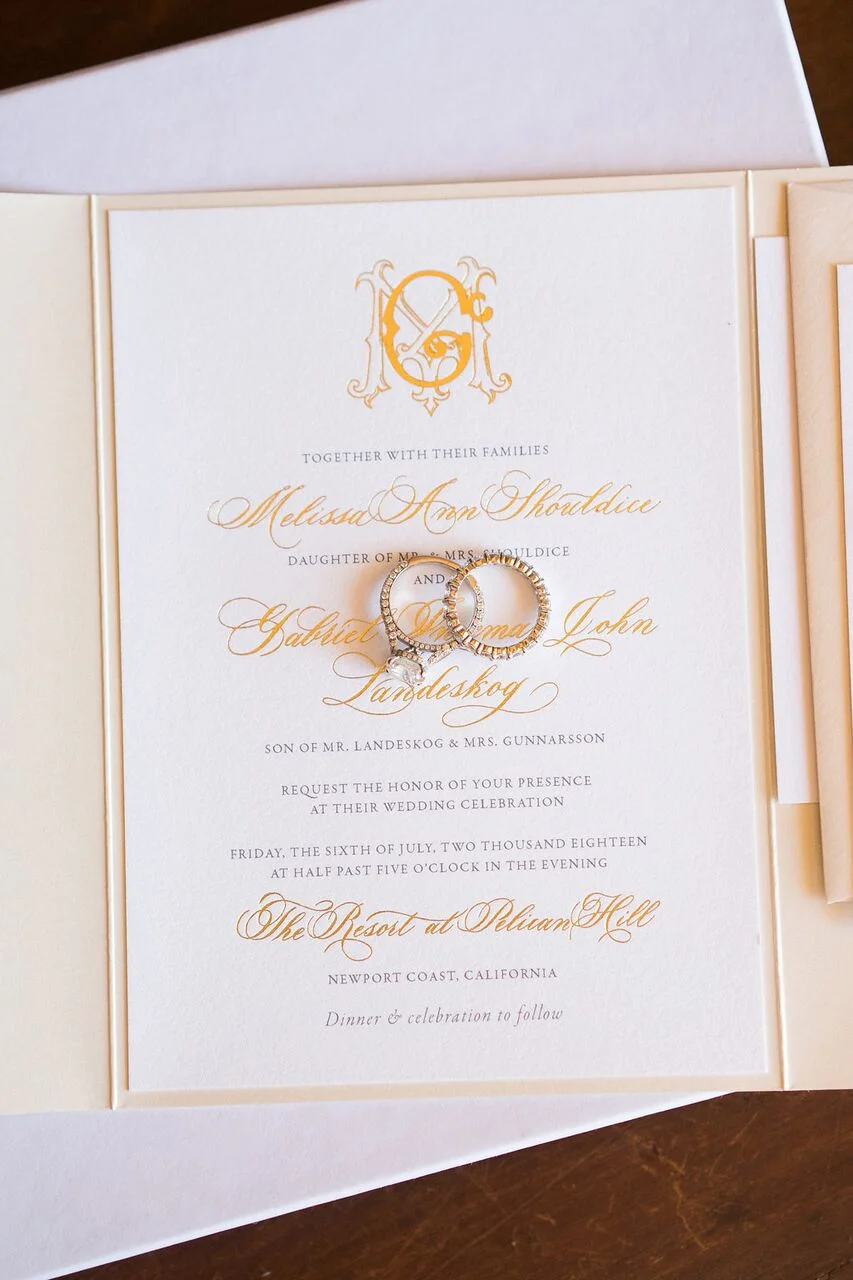 MG
TOGETHER WITH THEIR FAMILIES
Melissa Ann Shouldice
DAUGHTER OF MR. & MRS. SHOULDICE
AND
Gabriel John
Landeskog
SON OF MR. LANDESKOG & MRS. GUNNARSSON
REQUEST THE HONOR OF YOUR PRESENCE
AT THEIR WEDDING CELEBRATION
FRIDAY, THE SIXTH OF JULY, TWO THOUSAND EIGHTEEN
AT HALF PAST FIVE O'CLOCK IN THE EVENING
The Resort at Pelican Hill
NEWPORT COAST, CALIFORNIA
Dinner & celebration to follow